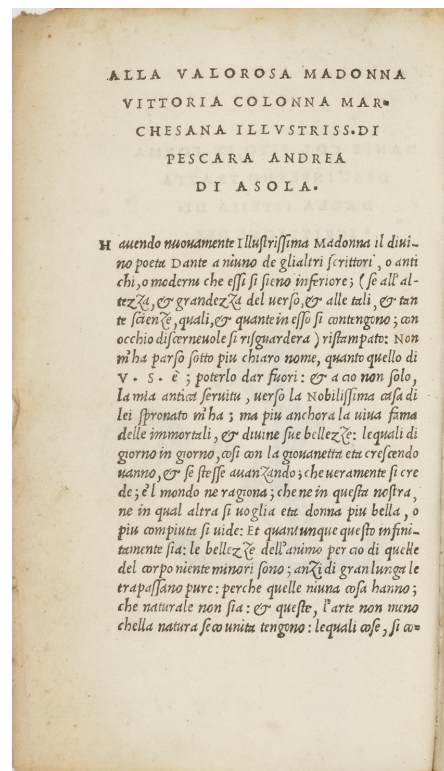 ALLA VALOROSA MADONNA
VITTORIA COLONNA MAR-
CHESANA ILLVSTRISS. DI
PESCARA ANDREA
DI ASOLA.
Hauendo nuouamente Illustrissima Madonna il diui-
no poeta Dante a niuno de glialtri scrittori, o anti
chi, o moderni che essi si sieno inferiore; (se all'al-
tezza, & grandezza del uerso, & alle tali, & tan
te scienze, quali, & quante in esso si contengono; con
occhio discerneuole si risguardera) ristampato: Non
m'ha parso sotto piu chiaro nome, quanto quello di
V. S. è; poterlo dar fuori: & a cio non solo,
la mia antica seruitu, uerso la Nobilissima casa di
lei spronato m'ha; ma piu anchora la uiua fama
delle immortali, & diuine sue bellezze: lequali di
giorno in giorno, cosi con la giouanetta eta crescendo
uanno, & se stesse auanzando; che ueramente si cre
de; e'l mondo ne ragiona; che ne in questa nostra,
ne in qual altra si uoglia eta donna piu bella, o
piu compiuta si uide: Et quantunque questo infini-
tamente sia: le bellezze dell'animo per cio di quelle
del corpo niente minori sono; anzi di gran lunga le
trapassano pure: perche quelle niuna cosa hanno;
che naturale non sia: & queste, l'arte non meno
chella natura seco unita tengono: lequali cose, si co-